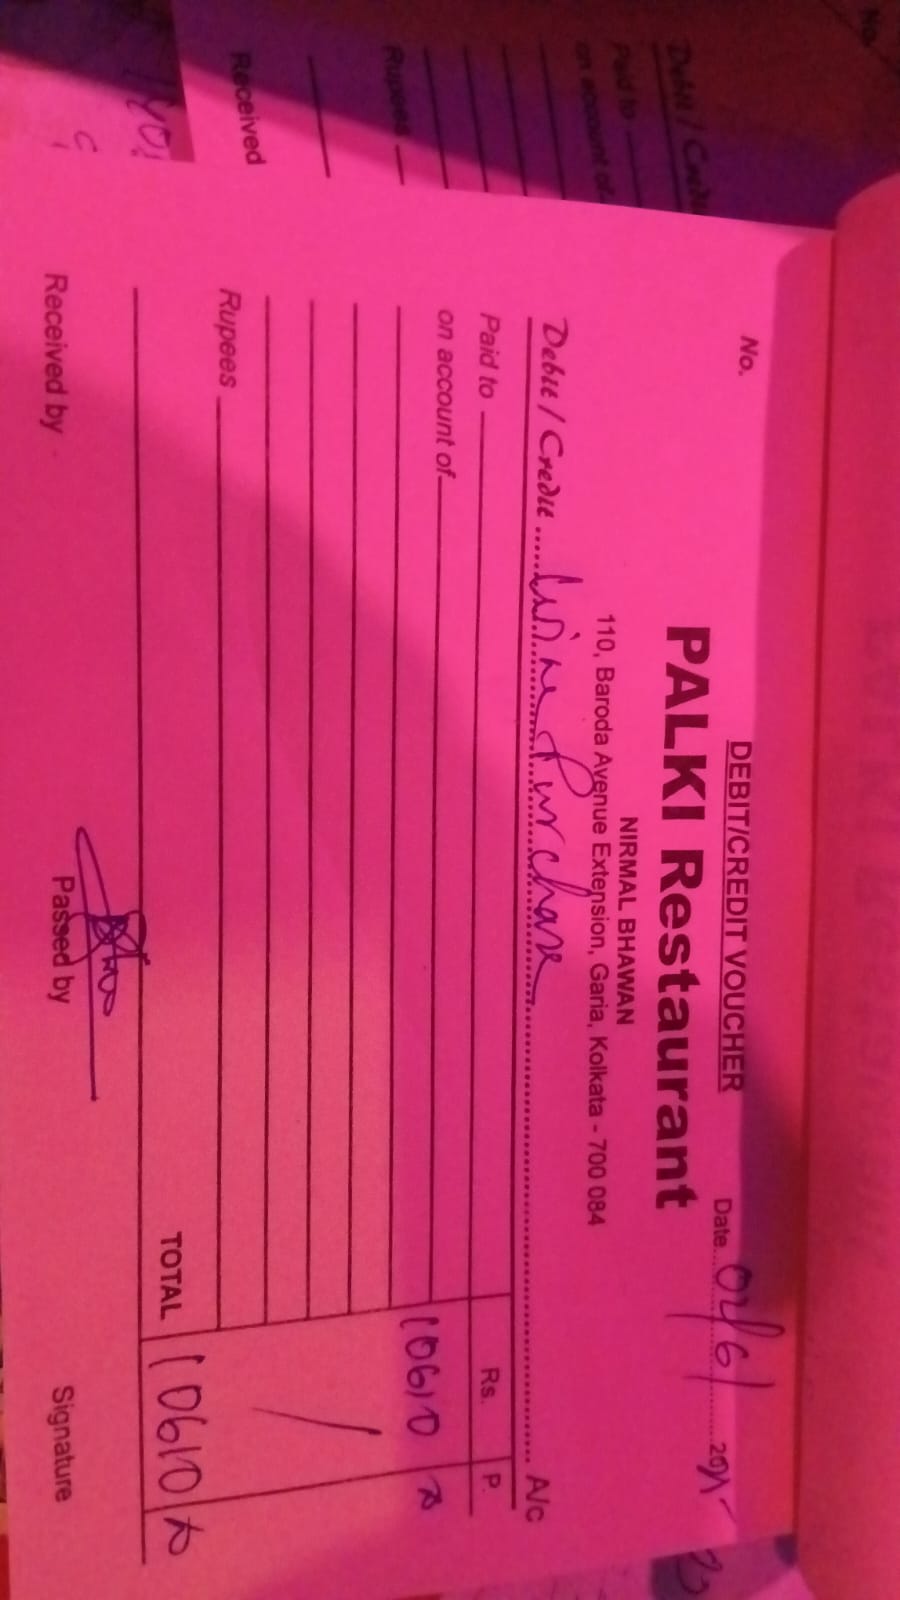 DEBIT/CREDIT VOUCHER
No.
Date
PALKI Restaurant
NIRMAL BHAWAN
110, Baroda Avenue Extension, Garia, Kolkata - 700 084
Debit / Credit ..... Wine Purchase ..... A/c
Paid to Rs. P.
on account of 10610
Rupees
TOTAL 10610
Received by Passed by Signature
No.
Debit / Credit
Paid to
on account of
Rupees
Received